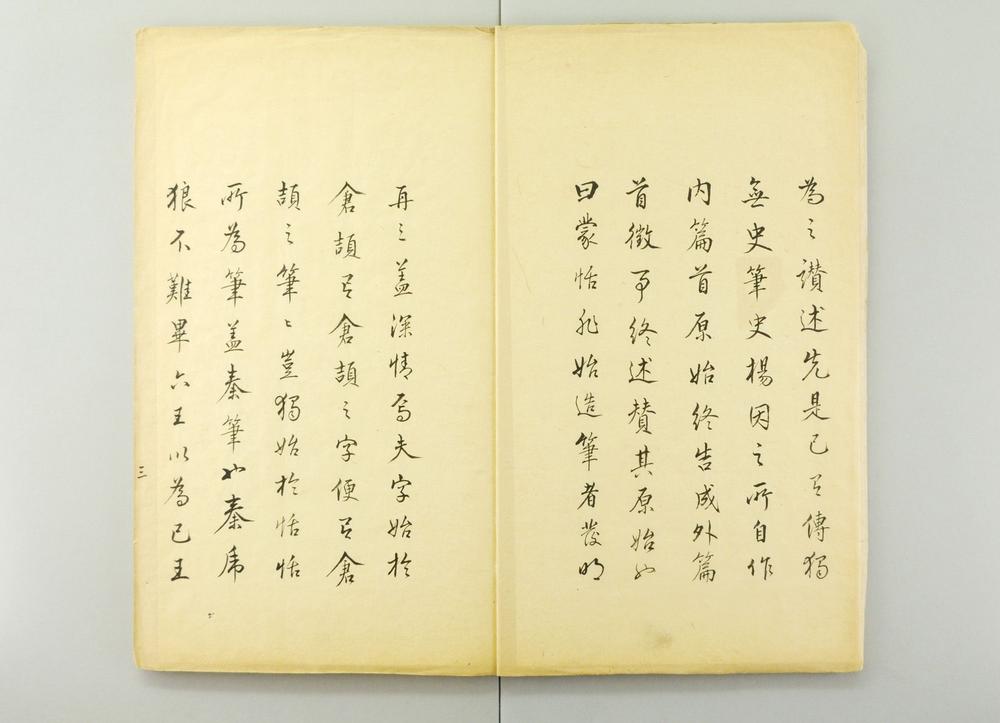 為之讚述先是已有傳獨
無史筆史楊因之所自作
内篇首原始終告成外篇
首徵事終述賛其原始也
曰蒙恬非始造筆者發明
再三盖深情焉夫字始於
倉頡有倉頡之字便有倉
頡之筆〻豈獨始於恬恬
所為筆盖秦筆也秦虎
狼不難畢六王以為已王
三